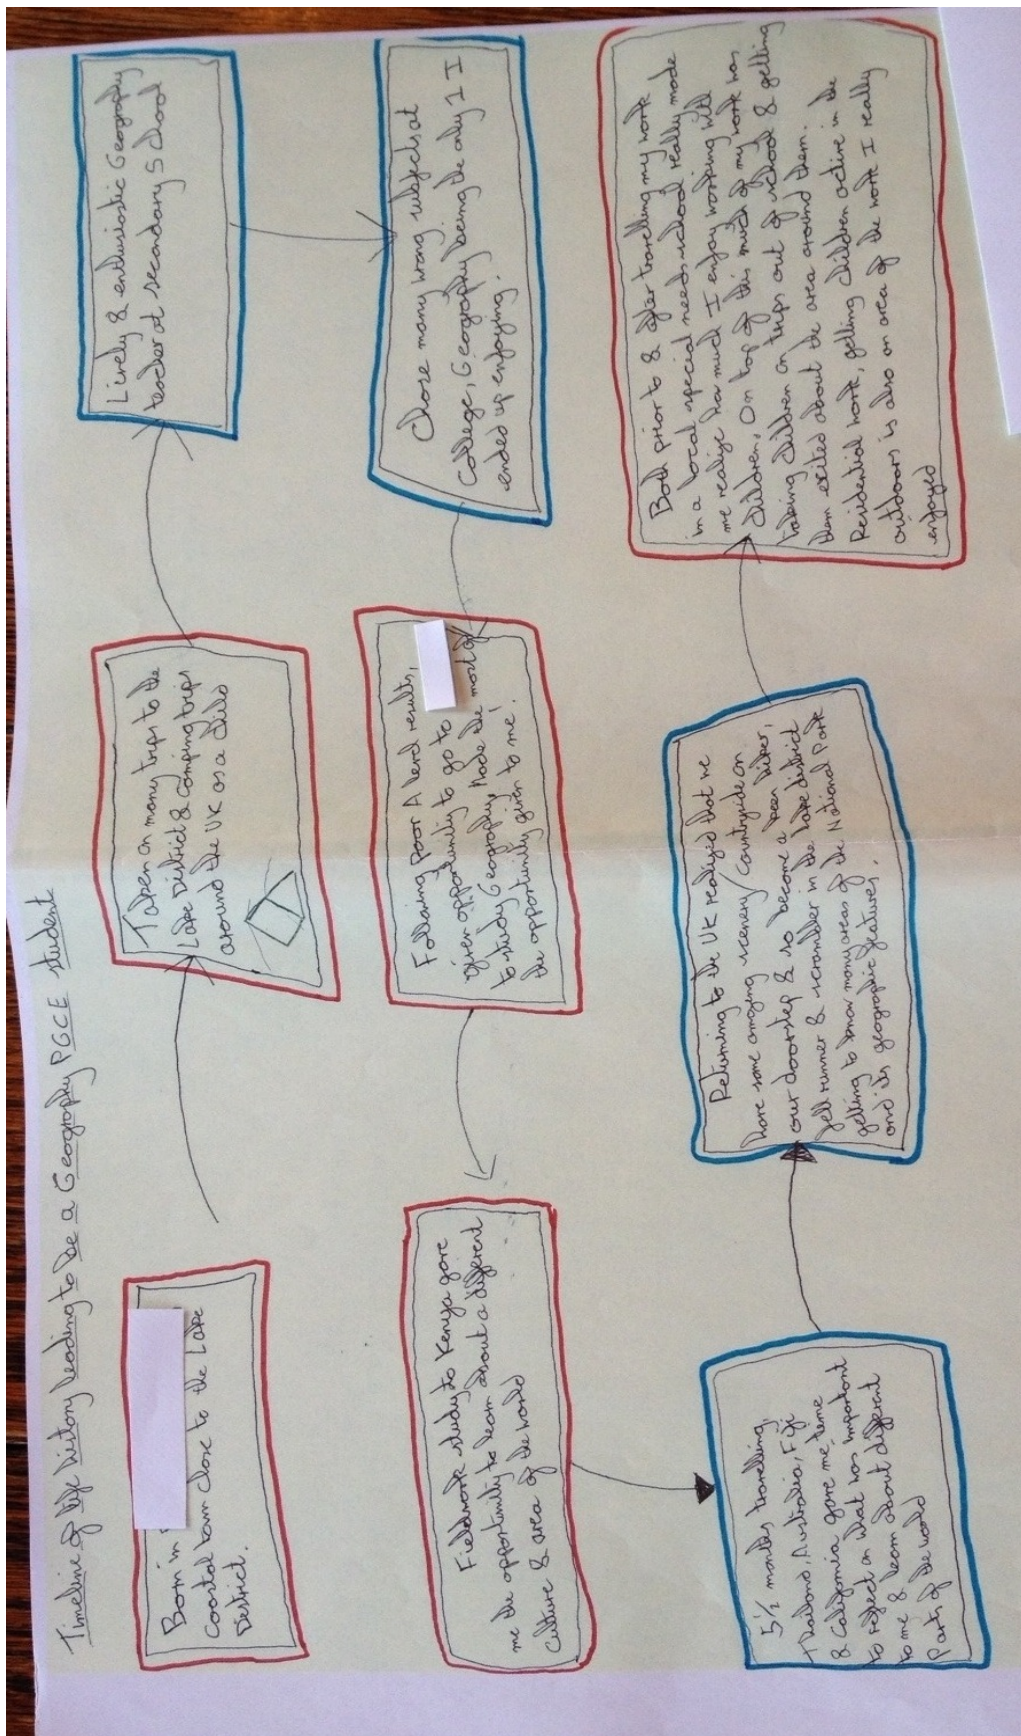 Timeline of life history leading to be a Geography PGCE student
Born in
Coastal town close to the Lake
District.
Taken on many trips to the
Lake District & Camping trips
around the UK as a child
Lively & enthusiastic Geography
teacher at secondary School
Chose many wrong subjects at
College, Geography being the only 1 I
ended up enjoying.
Following poor A level results,
given opportunity to go to
to study Geography. Made the most of
the opportunity given to me!
Fieldwork study to Kenya gave
me the opportunity to learn about a different
culture & area of the world
5 1/2 months travelling,
Thailand, Australia, Fiji
& California gave me time
to reflect on what was important
to me & learn about different
Parts of the world
Returning to the UK realised that we
have some amazing scenery/Countryside on
our doorstep & so become a keen hiker,
fell runner & scrambler in the Lake district
getting to know many areas of the National Park
and its geographic features.
Both prior to & after travelling my work
in a local special needs school really made
me realise how much I enjoy working with
children. On top of this much of my work was
taking children on trips out of school & getting
them exited about the area around them.
Residential work, getting children active in the
outdoors is also an area of the work I really
enjoyed